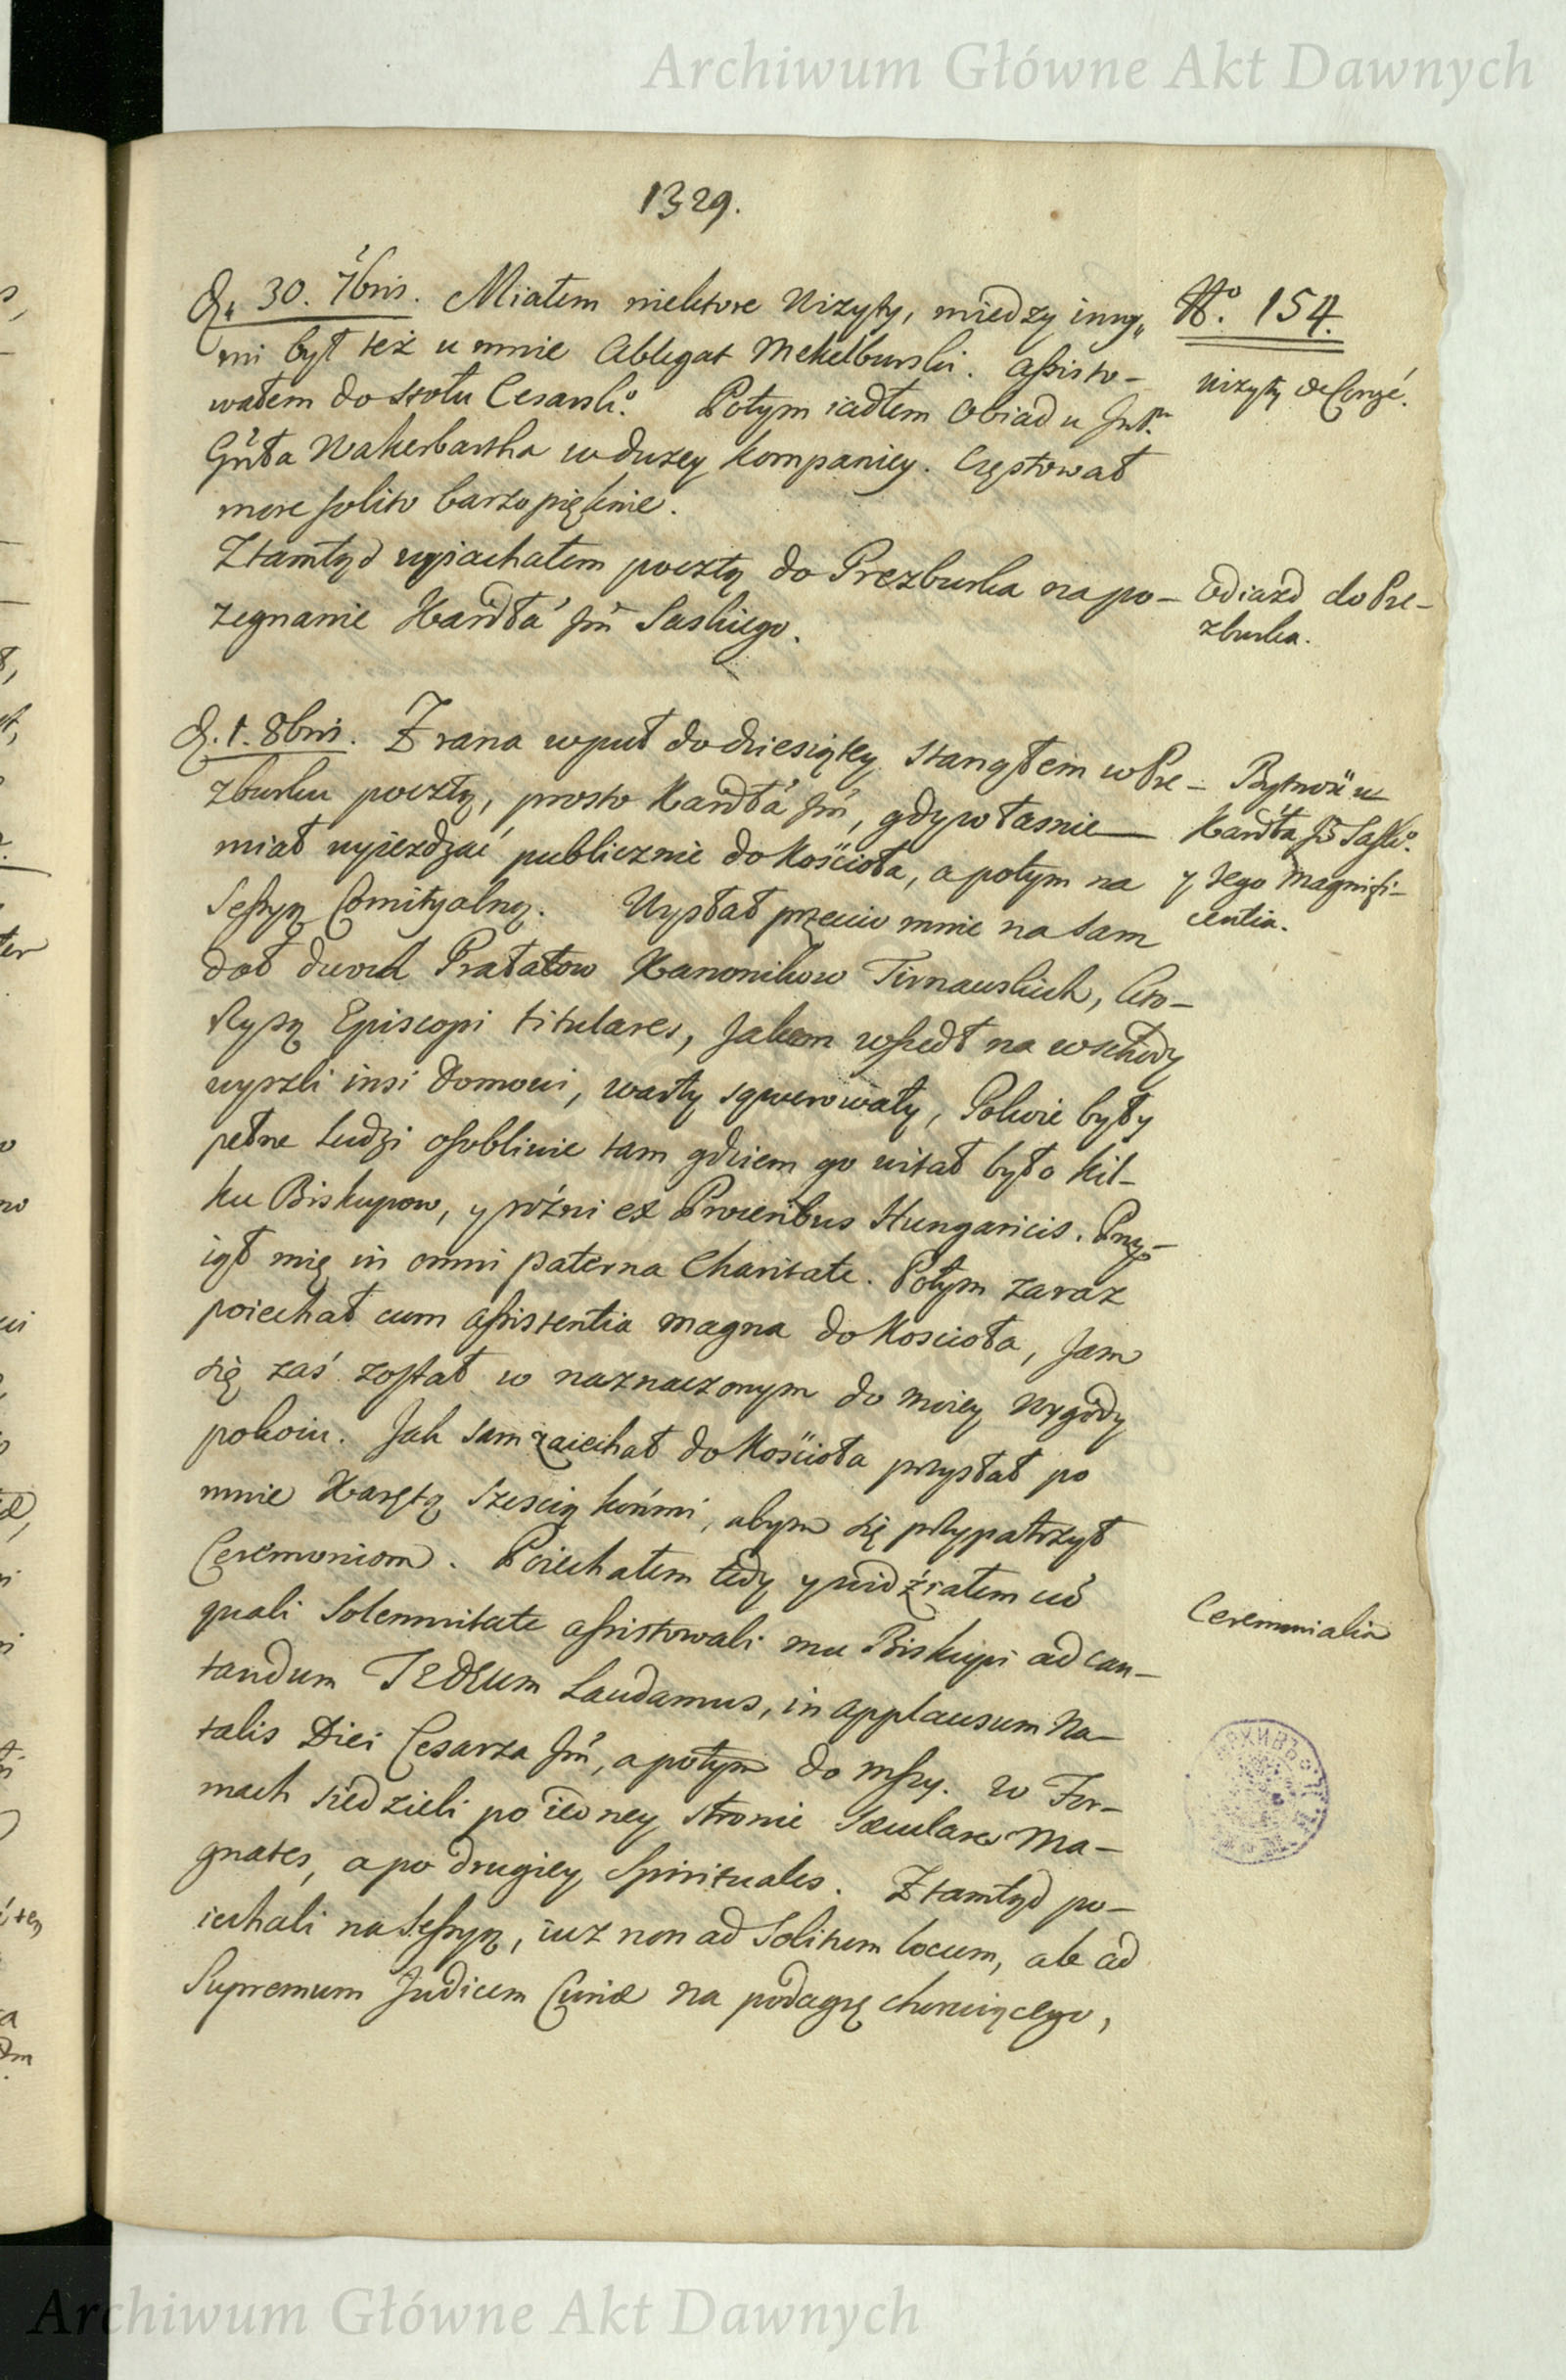 Archiwum Główne Akt Dawnych
1329.
D. 30. 7bris. Miałem niektore Wizyty, miedzy inny„
mi był też u mnie Ablegat Mekelburski. Assisto-
wałem do stołu Cesarski°. Potym iadłem Obiad u Jmp.
Gñła Wakerbartha w duzey kompaniey. Częstował
more solito barzo pięknie.
Ztamtąd wyiachałem pocztą do Prezburka na po-
zegnanie Kardła Jm̃ Saskiego.
D. 1. 8bris. Z rana wpuł do dziesiątey stanąłem w Pre-
zburku pocztą, prosto Kardła Jm̃, gdy własnie
miał wyieżdżać publicznie do Kościoła, a potym na
Sessyą Comityalną. Wysłał przeciw mnie na sam
doł dwuch Prałatow Kanonikow Tirnauskich, kto-
rzy są Episcopi titulares, Jakem wszedł na wschody
wyszli insi domowi, warty sqwerowały, Pokoie były
pełne ludzi osobliwie tam gdziem go witał było kil-
ku Biskupow, y różni ex Proceribus Hungaricis. Przy-
iął mię in omni paterna Charitate. Potym zaraz
poiechał cum assistentia magna do Koscioła, Jam
się zaś został w naznaczonym do moiey wygody
pokoiu. Jak sam zaiechał do Kościoła przysłał po
mnie Karętę sześcią końmi, abym się przypatrzył
Ceremoniom. Poiechałem tedy y widziałem cũ
quali Solemnitate assistowali mu Biskupi ad can-
tandum Te Deum Laudamus, in applausum Na-
talis Diei Cesarza Jm̃, a potym do mszy. W For-
mach siedzieli po iedney stronie Sæculares Ma-
gnates, a po drugiey Spirituales. Ztamtąd po-
iechali na Sessyą, iuz non ad Solitum locum, ale ad
Supremum Judicem Curiæ na podagrę choruiącego,
No. 154.
Wizyty
Odiazd do Pre-
zburka.
Bytność u
Kardła Jm̃ Saski°.
y Jego Magnifi-
centia.
Ceremonialia
Archiwum Główne Akt Dawnych